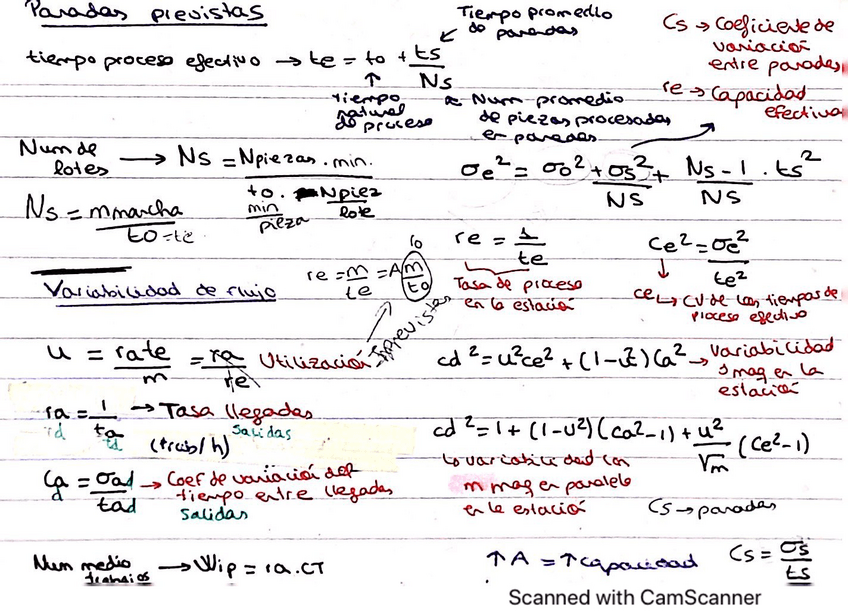 Paradas previstas
Tiempo promedio
de paradas
Cs → Coeficiente de
variación
entre paradas
tiempo proceso efectivo → te = to + ts/Ns
re → Capacidad
efectiva
tiempo
natural
de proceso
Num promedio
de piezas procesadas
en paradas
Num de
lotes → Ns = Npiezas . min. / to . Npiez
min/pieza lote
σe² = σo² + σs²/Ns + Ns - 1/Ns . ts²
Ns = mmarcha / to = te
re = m/te = A m/to
ro
re = 1/te
Tasa de proceso
en la estación
Ce² = σe²/te²
ce → CV de los tiempos de
proceso efectivo
Variabilidad de flujo
Imprevistas
u = rate/m = ra/re Utilización
cd² = u²ce² + (1-u²)Ca² → variabilidad
1 maq en la
estación
ra = 1/ta → Tasa llegadas
d td salidas
(trab/h)
cd² = 1 + (1-u²)(ca²-1) + u²/√m (ce²-1)
↳ variabilidad con
m maq en paralelo
en la estación
Ca = σad/tad → Coef de variación del
d tiempo entre llegadas
salidas
Cs → paradas
Num medio
trabajos → Wip = ra.CT
↑A = ↑capacidad
Cs = σs/ts
Scanned with CamScanner